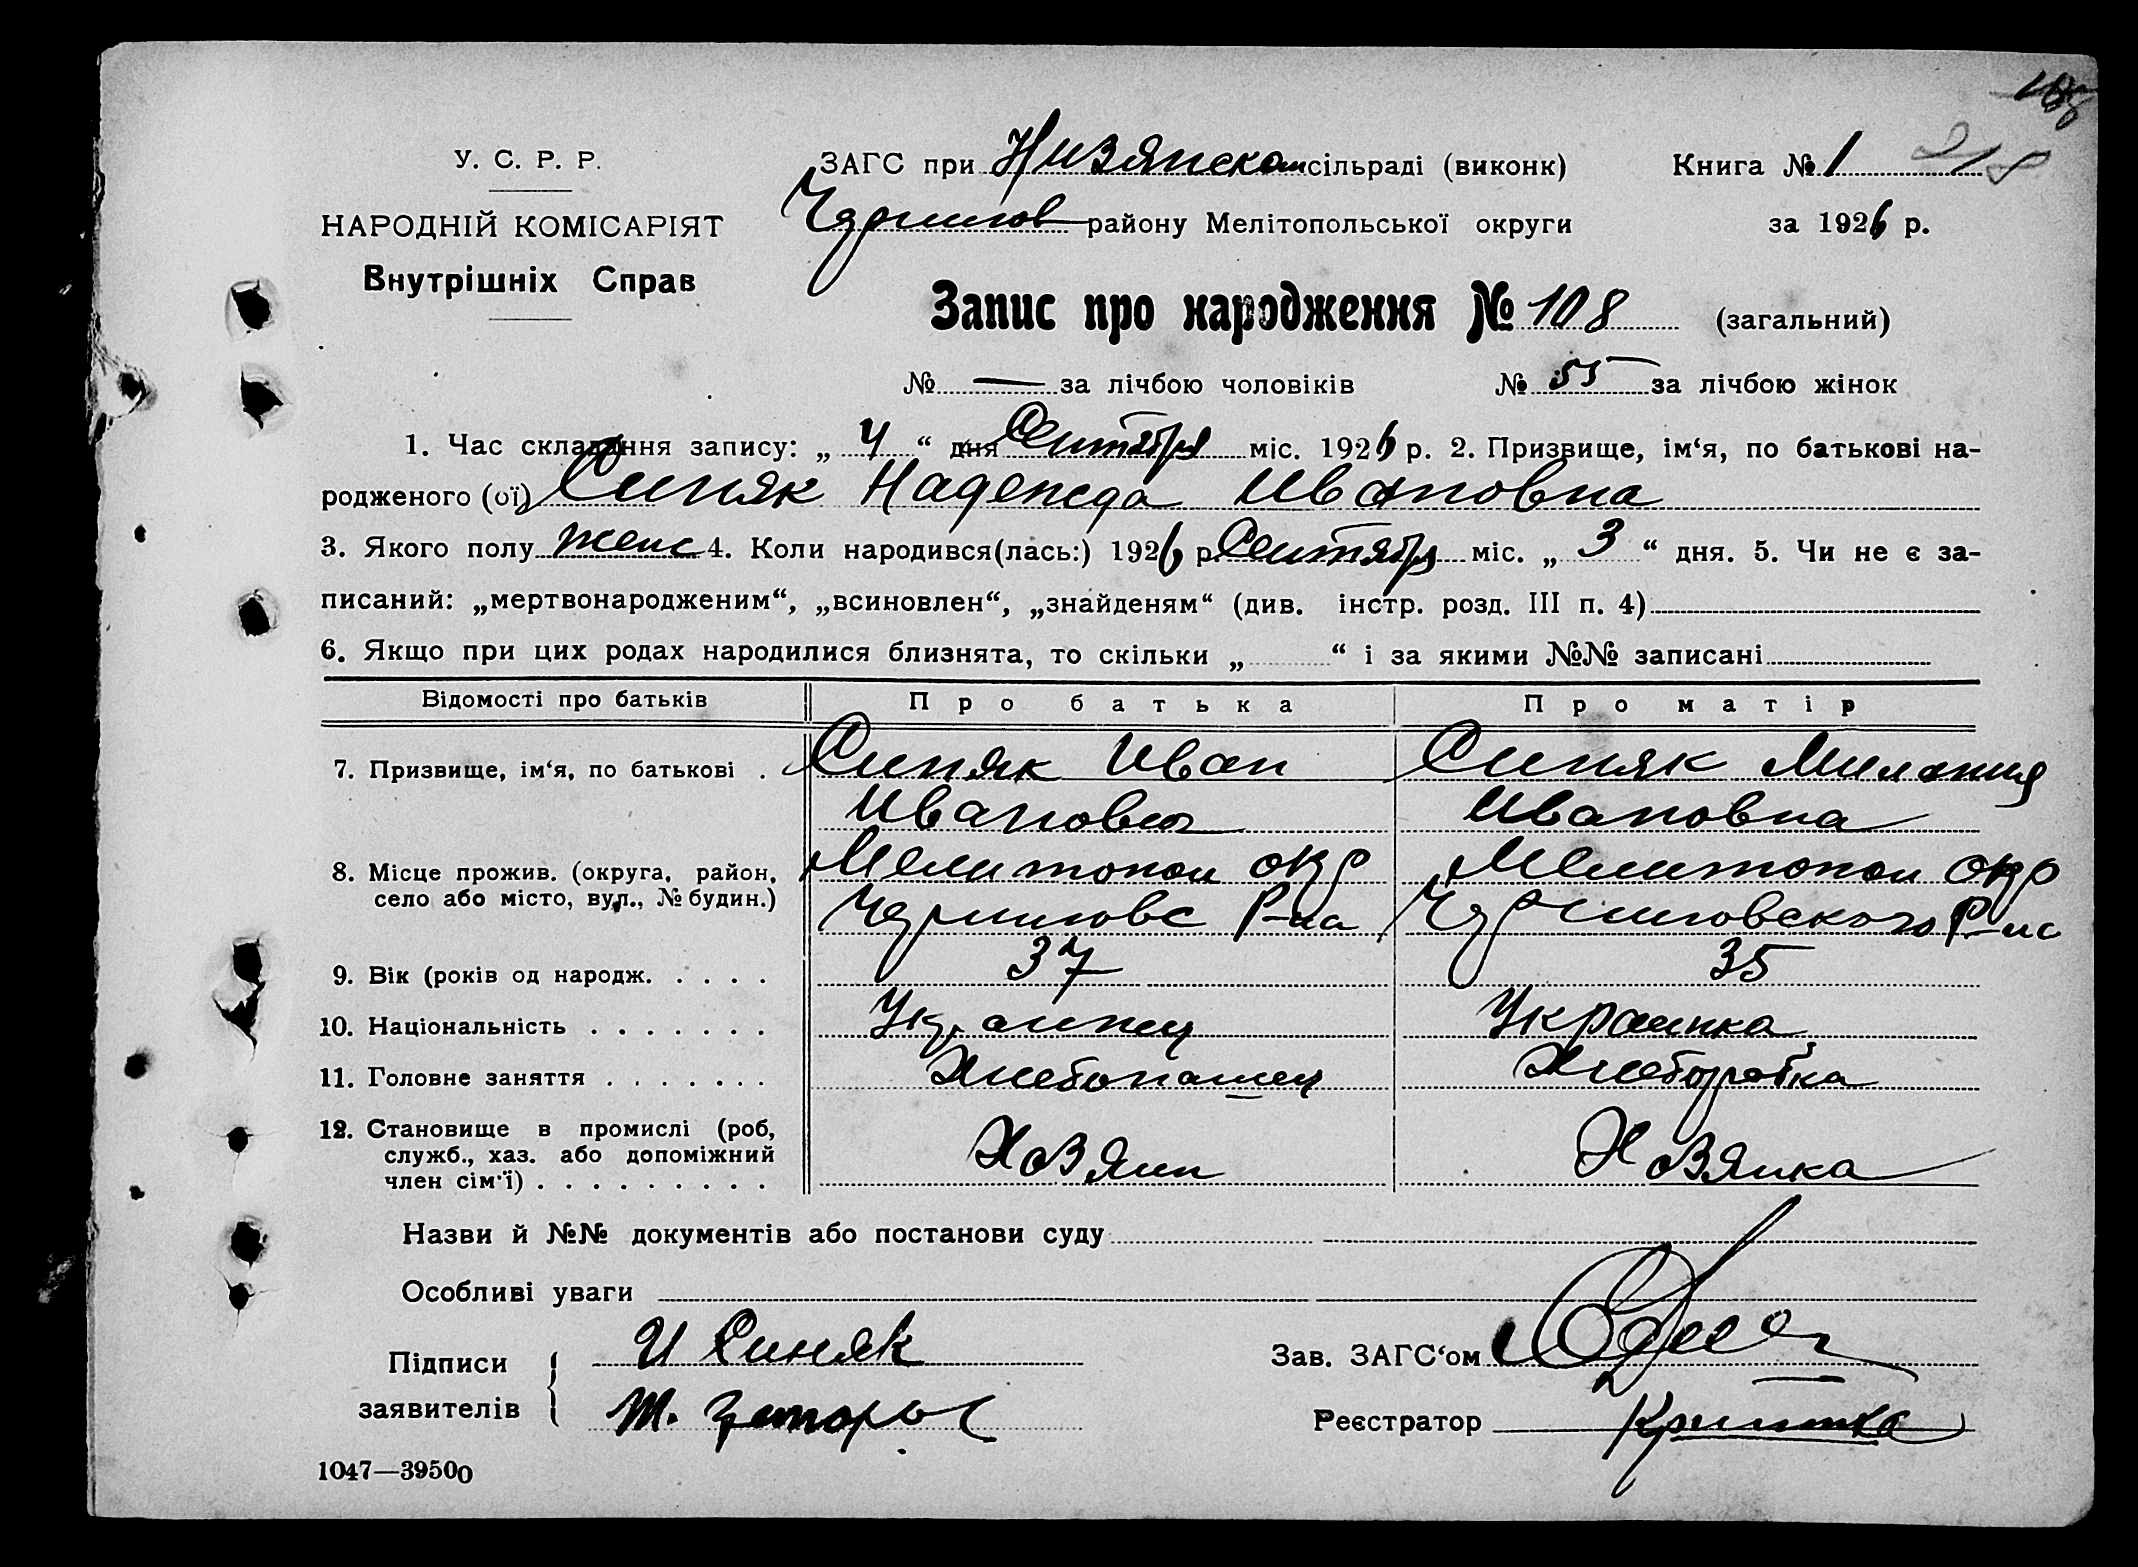 У. С. Р. Р.
НАРОДНІЙ КОМІСАРІЯТ
Внутрішніх Справ
ЗАГС при Низянском сільраді (виконк)
Книга № 1 218
Черниговрайону Мелітопольської округи
за 1926 р.
Запис про народження № 108 (загальний)
№ — за лічбою чоловіків № 55 за лічбою жінок
1. Час складання запису: „ 4 “ дня Сентября міс. 1926 р. 2. Призвище, ім‘я, по батькові на-
родженого (ої) Синяк Надежда Ивановна
3. Якого полу женс 4. Коли народився(лась:) 1926 р. Сентября міс. „ 3 “ дня. 5. Чи не є за-
писаний: „мертвонародженим“, „всиновлен“, „знайденям“ (див. інстр. розд. III п. 4)
6. Якщо при цих родах народилися близнята, то скільки „ “ і за якими №№ записані
Відомості про батьків Про батька Про матір
7. Призвище, ім‘я, по батькові . Синяк Иван Синяк Милания
Иванович Ивановна
8. Місце прожив. (округа, район, село або місто, вул., № будин.) Мелитопол окр Мелитопол окр
Черниговс Р-на Черниговского Р-на
9. Вік (років од народж. . . . . 37 35
10. Національність . . . . . . . Украинец Украинка
11. Головне заняття . . . . . . . Хлебопашец Хлеборобка
12. Становище в промислі (роб, служб., хаз. або допоміжний член сім‘ї) . . . . . . . . . Хозяин Хозяйка
Назви й №№ документів або постанови суду
Особливі уваги
Підписи заявителів { И Синяк
Зав. ЗАГС‘ом
Реєстратор
1047—39500